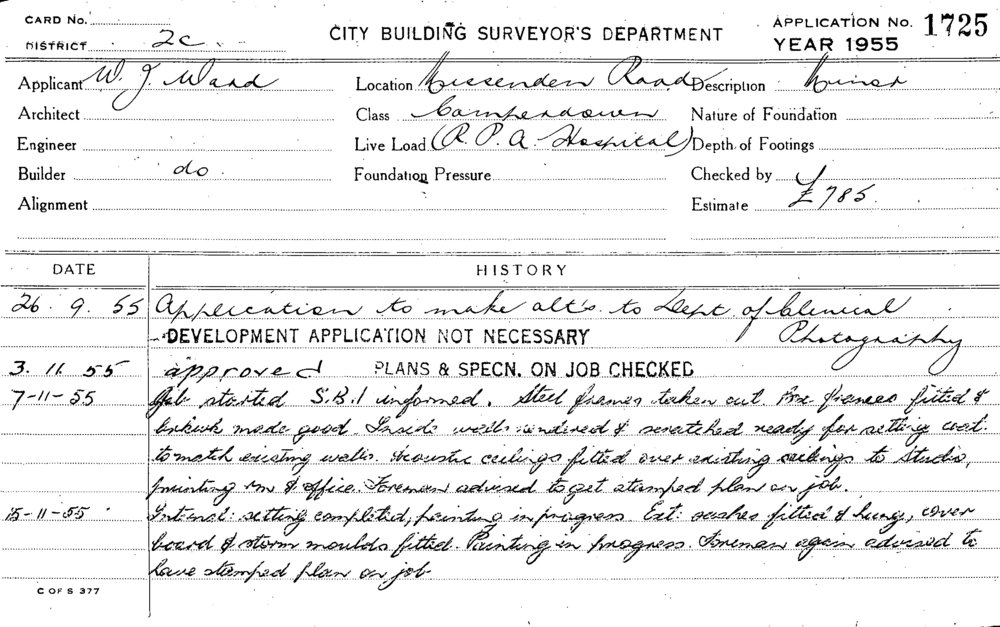 CARD No.
DISTRICT 2c.
CITY BUILDING SURVEYOR'S DEPARTMENT
APPLICATION No. 1725
YEAR 1955
Applicant W. J. Ward Location Missenden Road Description Minor
Architect Class Camperdown Nature of Foundation
Engineer Live Load (R. P. A. Hospital) Depth of Footings
Builder do. Foundation Pressure Checked by
Alignment Estimate £785.
DATE HISTORY
26. 9. 55 Application to make alt's. to Dept. of Clinical
DEVELOPMENT APPLICATION NOT NECESSARY Photography
3. 11. 55 approved PLANS & SPECN. ON JOB CHECKED
7-11-55 Job started S.B.I informed. Steel frames taken out. frames fitted &
brkwk made good. Inside walls rendered & scratched ready for setting coat.
to match existing walls. Acoustic ceilings fitted over existing ceilings to Studio,
printing rm & office. Foreman advised to get stamped plan on job.
15-11-55 Internal: setting completed, painting in progress Ext: sashes fitted & hung, cover
board & storm moulds fitted. Painting in progress. Foreman again advised to
have stamped plan on job
C OF S 377